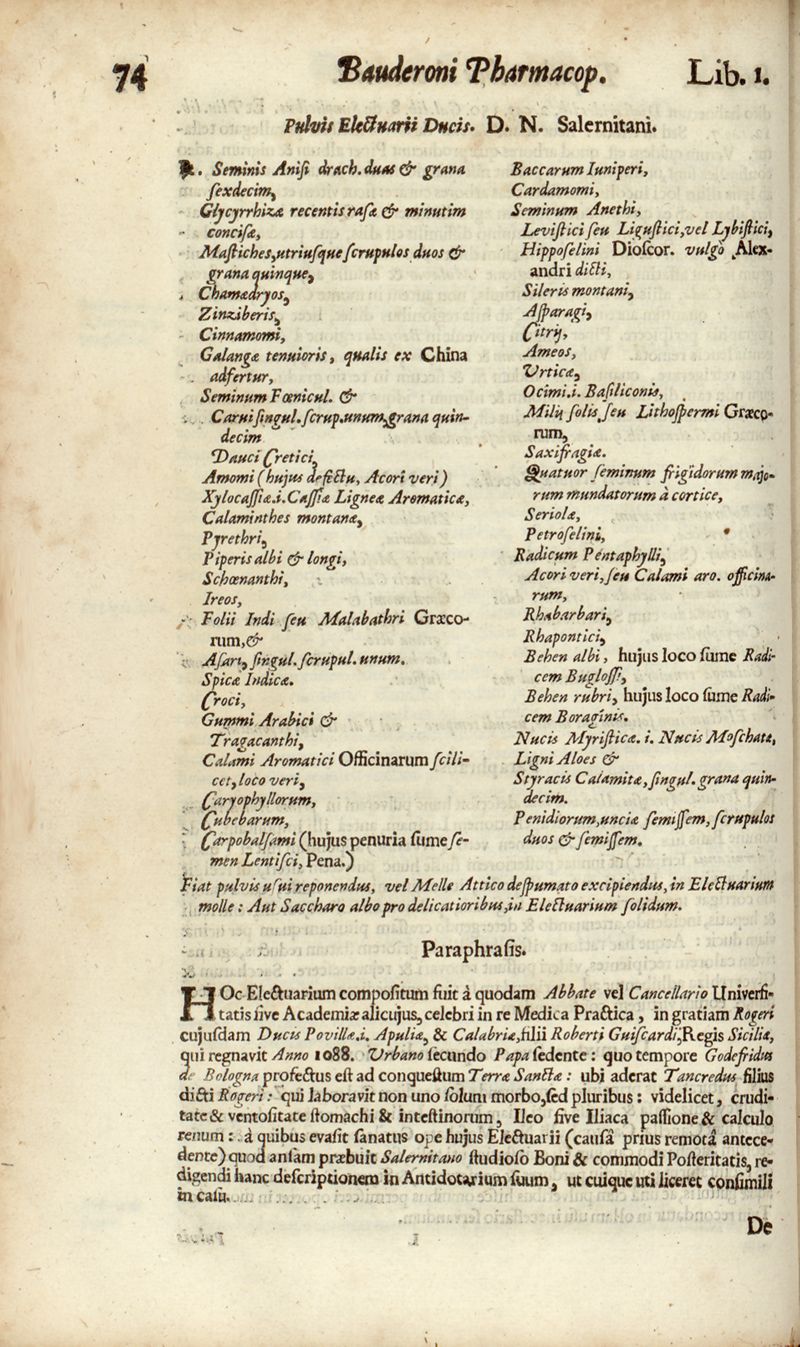 74 Bauderoni Pharmacop. Lib. 1.
Pulvis Electuarii Ducis. D. N. Salernitani.
℞. Seminis Anisi drach. duas & grana
sexdecim,
Glycyrrhizæ recentis rasæ & minutim
concisæ,
Mastiches, utriusque scrupulos duos &
grana quinque,
Chamædryos,
Zinziberis,
Cinnamomi,
Galangæ tenuioris, qualis ex China
adfertur,
Seminum Fœnicul. &
Carui singul. scrup. unum, grana quin-
decim
Dauci Cretici,
Amomi (hujus defectu, Acori veri)
Xylocassiæ .i. Cassiæ Ligneæ Aromaticæ,
Calaminthes montanæ,
Pyrethri,
Piperis albi & longi,
Schœnanthi,
Ireos,
Folii Indi seu Malabathri Græco-
rum, &
Asari, singul. scrupul. unum.
Spicæ Indicæ.
Croci,
Gummi Arabici &
Tragacanthi,
Calami Aromatici Officinarum scili-
cet, loco veri,
Caryophyllorum,
Cubebarum,
Carpobalsami (hujus penuria sume se-
men Lentisci, Pena.)
Baccarum Iuniperi,
Cardamomi,
Seminum Anethi,
Levistici seu Ligustici, vel Lybistici,
Hipposelini Dioscor. vulgò Alex-
andri dicti,
Sileris montani,
Asparagi,
Citrij,
Ameos,
Vrticæ,
Ocimi .i. Basiliconis,
Milij solis seu Lithospermi Græco-
rum,
Saxifragiæ.
Quatuor seminum frigidorum majo-
rum mundatorum à cortice,
Seriolæ,
Petroselini,
Radicum Pentaphylli,
Acori veri, seu Calami aro. officina-
rum,
Rhabarbari,
Rhapontici,
Behen albi, hujus loco sume Radi-
cem Buglossi,
Behen rubri, hujus loco sume Radi-
cem Boraginis.
Nucis Myristicæ. i. Nucis Moschatæ,
Ligni Aloes &
Styracis Calamitæ, singul. grana quin-
decim.
Penidiorum, unciæ semissem, scrupulos
duos & semissem.
Fiat pulvis usui reponendus, vel Melle Attico despumato excipiendus, in Electuarium
molle: Aut Saccharo albo pro delicatioribus, in Electuarium solidum.
Paraphrasis.
HOc Electuarium compositum fuit à quodam Abbate vel Cancellario Universi-
tatis sive Academiæ alicujus, celebri in re Medica Practica, in gratiam Rogeri
cujusdam Ducis Povillæ .i. Apuliæ, & Calabriæ, filii Roberti Guiscardi, Regis Siciliæ,
qui regnavit Anno 1088. Vrbano secundo Papa sedente: quo tempore Godefridus
de Bologna profectus est ad conquestum Terræ Sanctæ: ubi aderat Tancredus filius
dicti Rogeri: qui laboravit non uno solum morbo, sed pluribus: videlicet, crudi-
tate & ventositate stomachi & intestinorum, Ileo sive Iliaca passione & calculo
renum: à quibus evasit sanatus ope hujus Electuarii (causâ prius remotâ antece-
dente) quod ansam præbuit Salernitano studioso Boni & commodi Posteritatis, re-
digendi hanc descriptionem in Antidotarium suum, ut cuique uti liceret consimili
in casu.
De